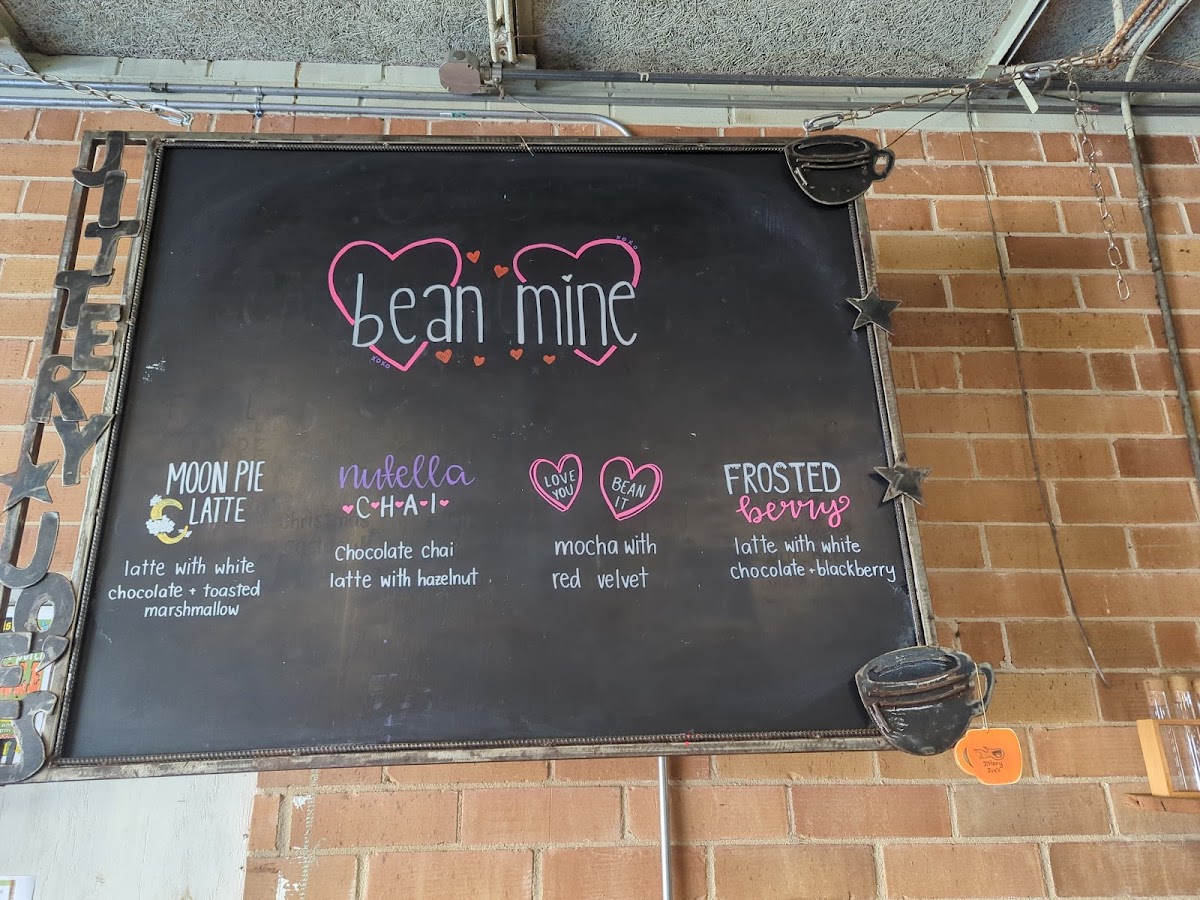 JITTERY
JOE'S
xoxo
bean mine
xoxo
MOON PIE
LATTE
latte with white
chocolate + toasted
marshmallow
nutella
C·H·A·I
Chocolate chai
latte with hazelnut
LOVE
YOU
BEAN
IT
mocha with
red velvet
FROSTED
berry
latte with white
chocolate + blackberry
Jittery
Joe's